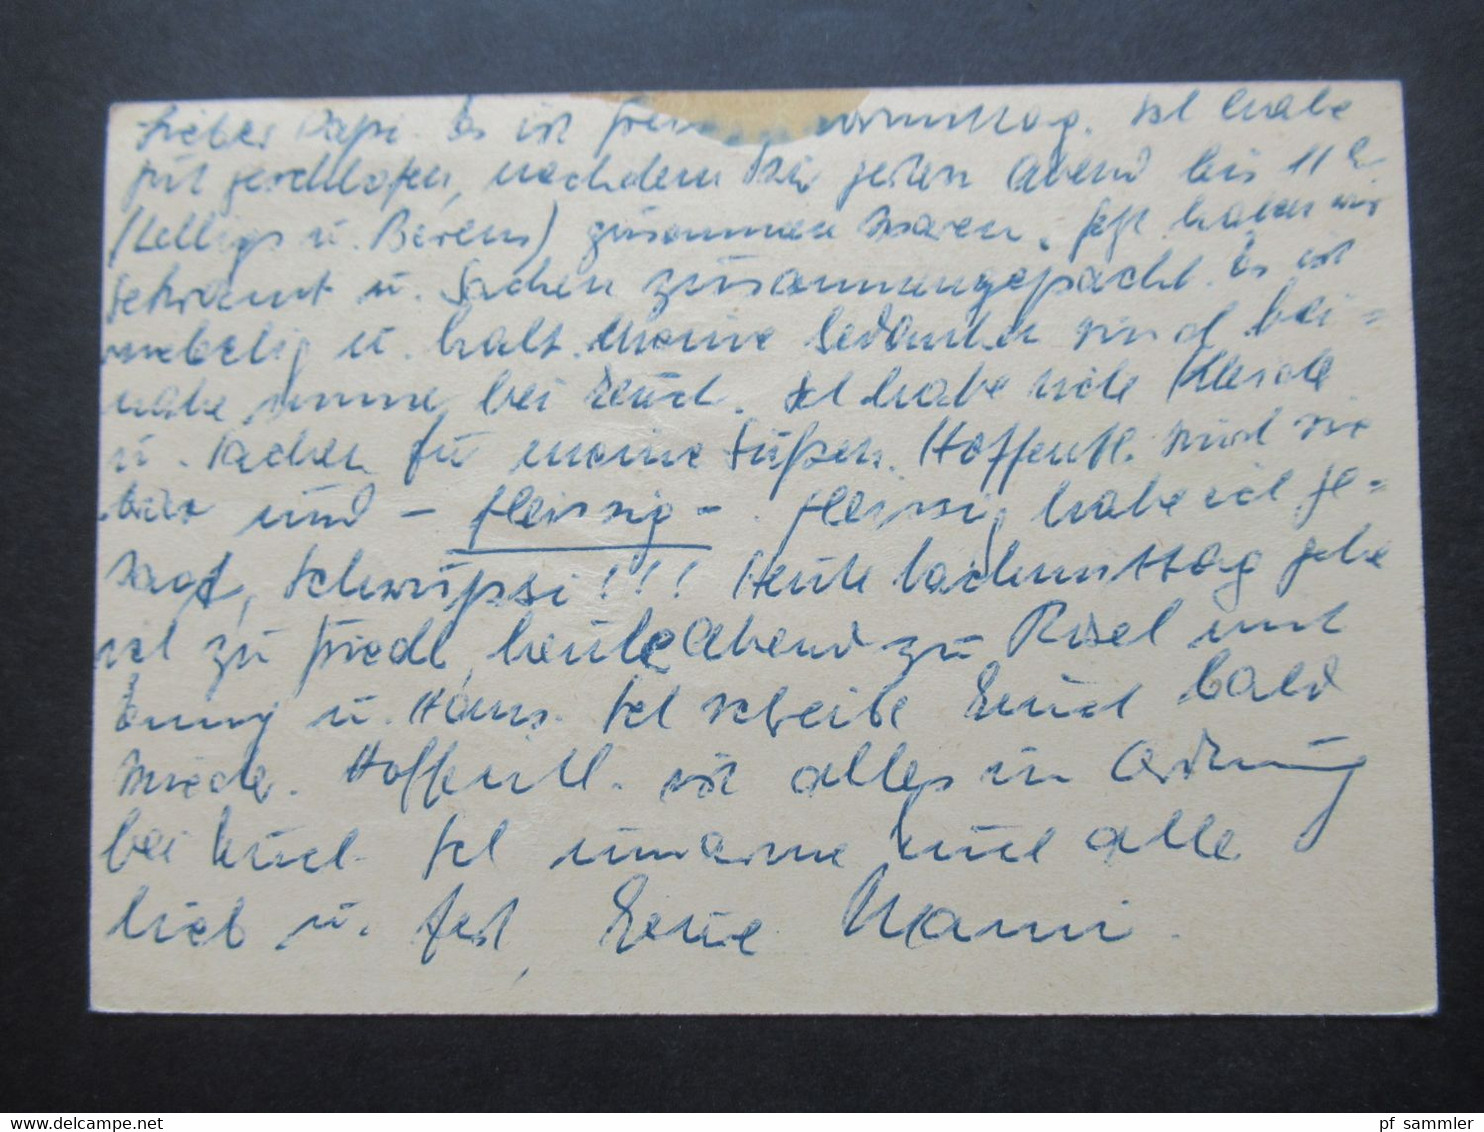 Lieber Papi. Es ist vormittag. Ich habe
gut geschlafen, nachdem wir gestern Abend bis 11 h
(Kelligs u. Berens) zusammen waren. Jetzt haben wir
gekramt u. Sachen zusammengepackt. Es ist
nebelig u. kalt. Meine Gedanken sind bei=
nahe immer bei Euch. Ich habe viele Kleider
u. Sachen für meine Süßen. Hoffentl. sind sie
brav und - fleissig - . fleissig habe ich ge=
sagt, Schwupsi!!! Heute Nachmittag gehe
ich zu Friedl, heute Abend zu Rosel und
u. Hans. Ich schreibe Euch bald
wieder. Hoffentl. ist alles in Ordnung
bei Euch. Ich umarme Euch alle
lieb u. fest, Eure Mami.
pf sammler delcampe.net